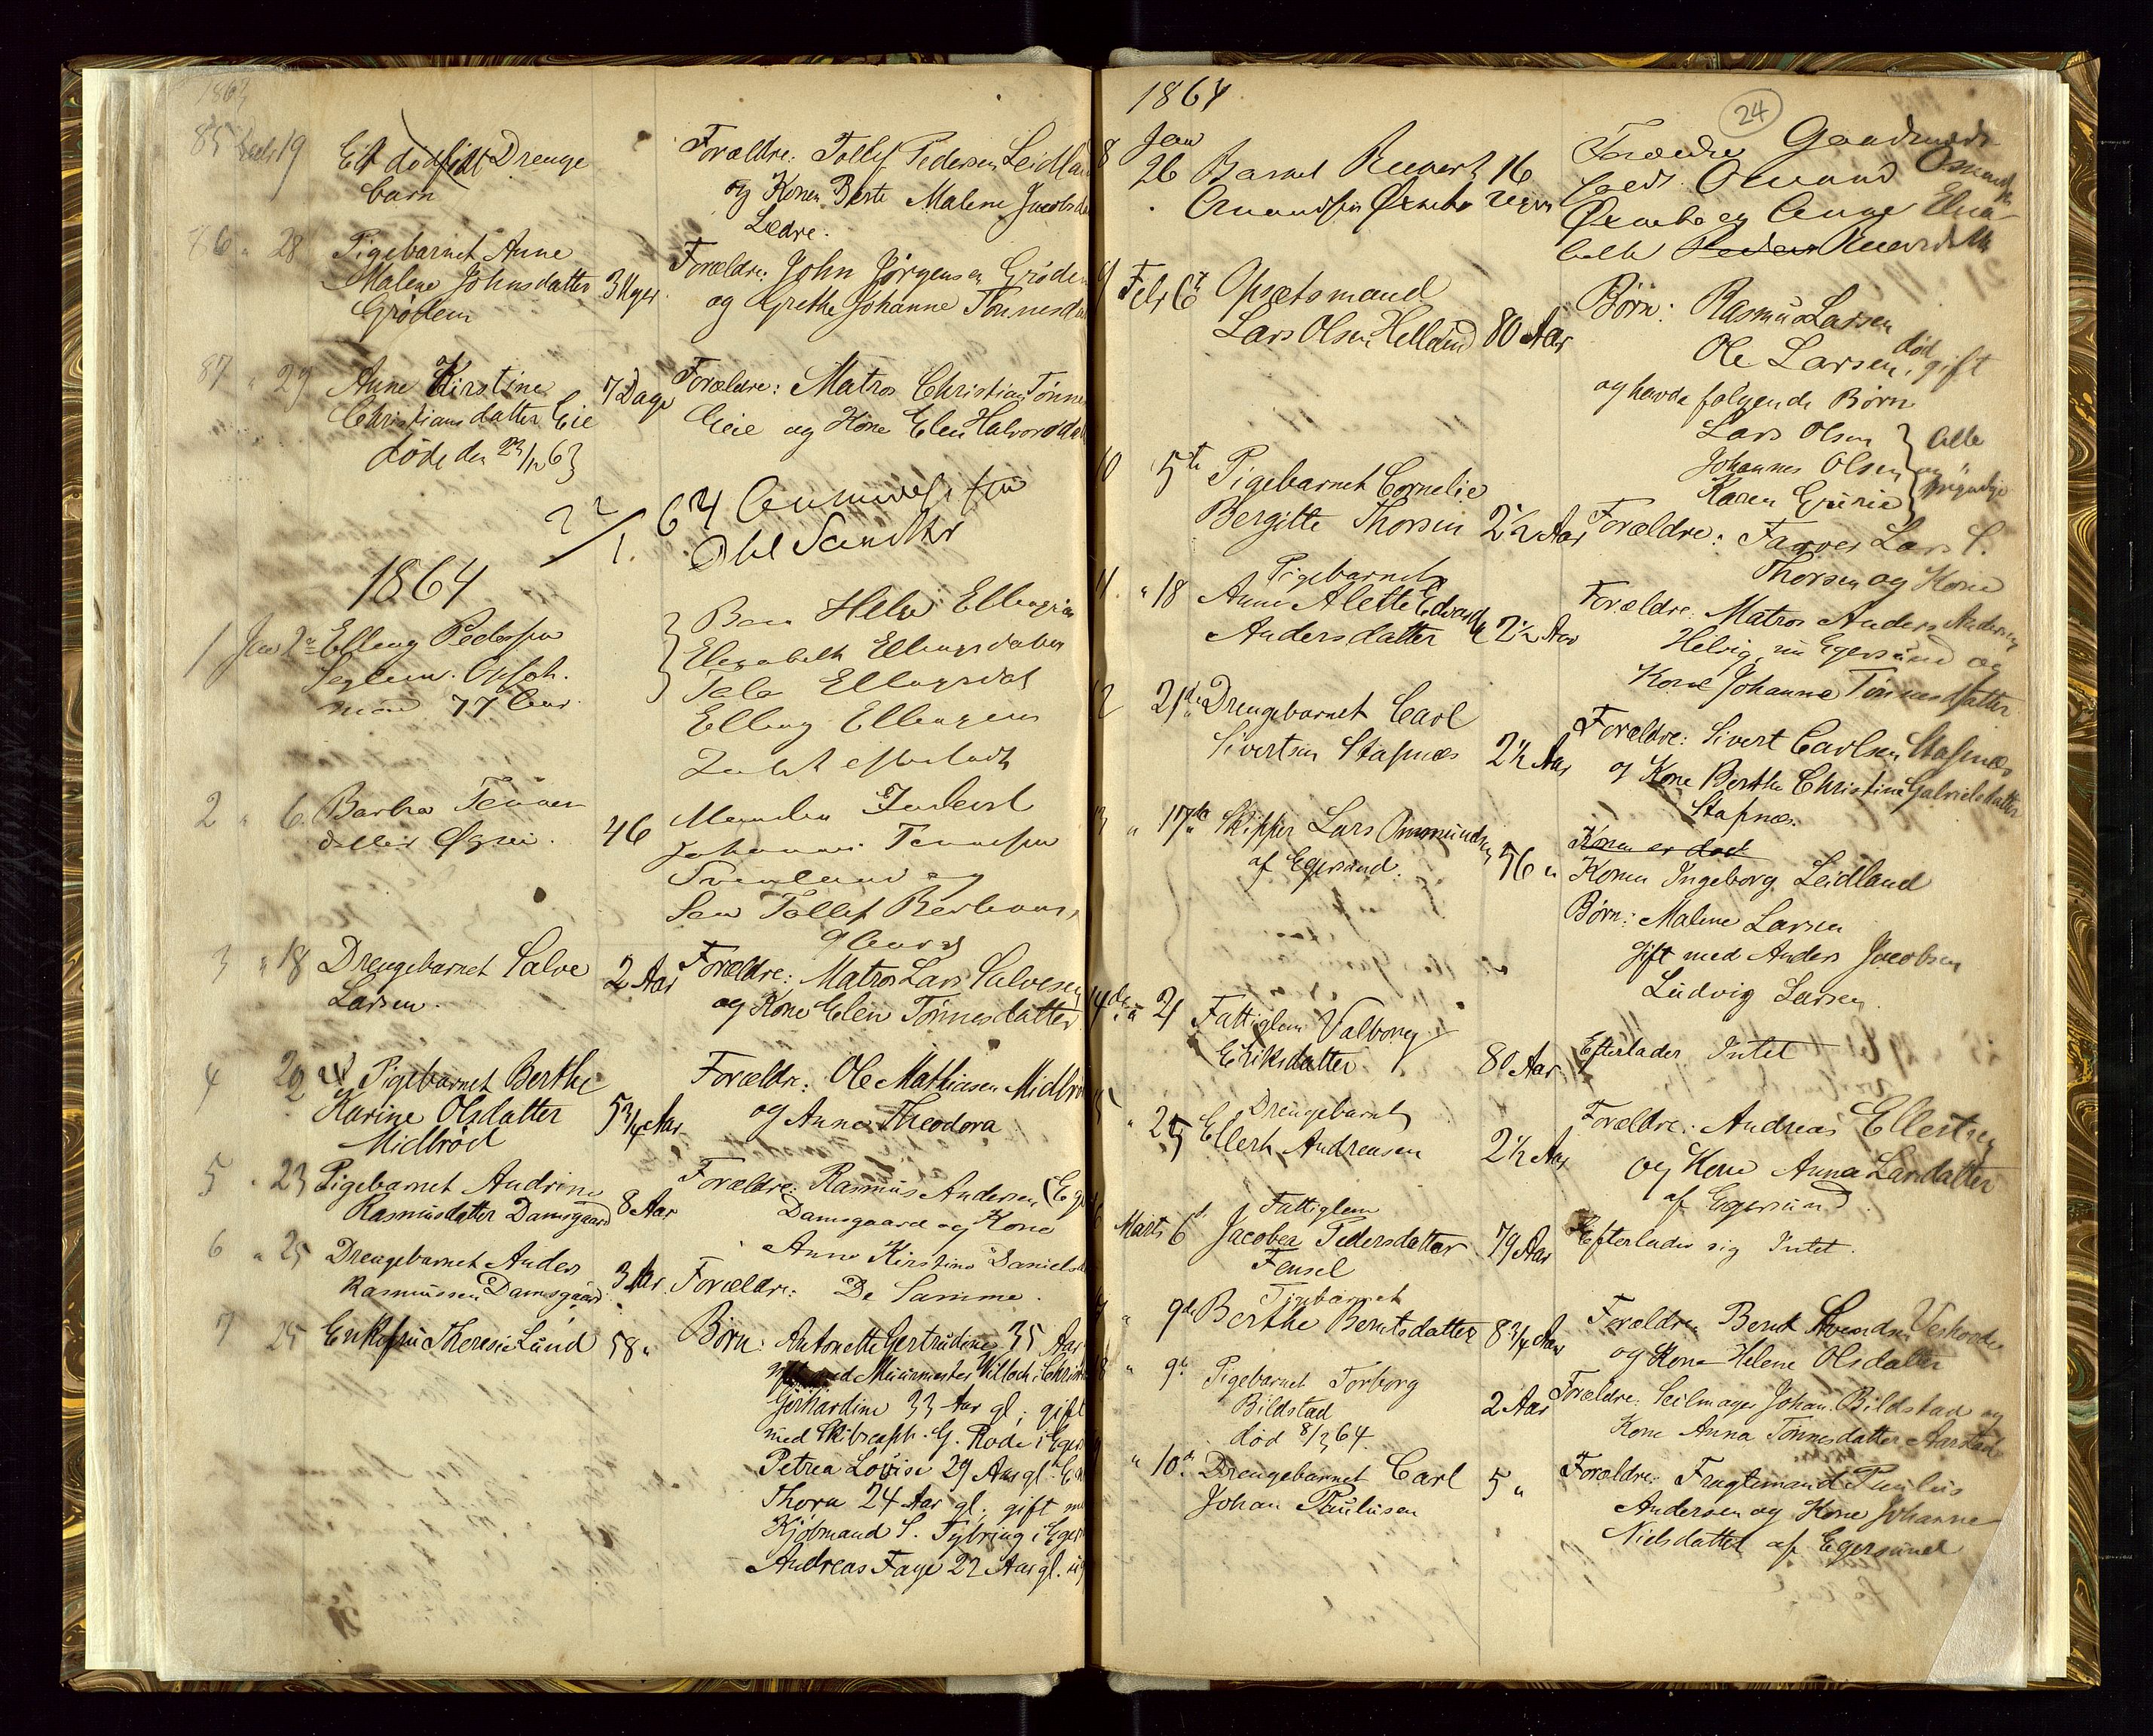 1863
85 Decbr 19 Et dødfødt Drenge
barn
Forældre: Tollef Pedersen Leidland
og Konen Berte Malene Jacobsd
Lædre.
86 " 28 Pigebarnet Anne
Malene Johnsdatter 3 Uger
Grødem
Forældre: John Jørgensen Grødem
og Grethe Johanne Tønnesd
87 " 29 Anne Kirstine 7 Dage
Christiansdatter Eie
døde den 23/12 63
Forældre: Matros Christian Tønnes
Eeie og Kone Elen Halvorsdat
22/1. 64
1864
1 Jan 2 Elleng Pedersen
Seglem. Opsid.
mand 77 Aar.
Elisabeth Ellingsdatter
Tala Ellingsdat
Elling Ellingsen
Intet efterladt
2 " 6. Barbra Tønnes
datter 46
Johannes Tønnesen
Svanland og
Søn Tollef
9 Aar gl
3 " 18 Drengebarnet Salve 2 Aar
Larsen.
Forældre: Matros Lars Salvesen
og Kone Elen Tønnesdatter
4 20 Pigebarnet Berthe
Karine Olsdatter 5 3/4 Aar
Midbrød
Forældre: Ole Mathiasen Midbrø
og Anne Theodora
5 " 23 Pigebarnet Andrine
Rasmusdatter Damsgaard 8 Aar
Forældre: Rasmus Andersen (Eg
Damsgaard og Kone
Anne Kirstine Daniels
6 " 25 Drengebarnet Anders 3 Aar
Rasmussen Damsgaard
Forældre: De Samme.
7 25 Enkefru Theresie Lund 58 "
Børn: Antonette Gertrudine 35 Aar
gift med Muurmester Willoch i Christi
Gerhardine 33 Aar gl; gift
med Skibscapt. G. Rode i Eger
Petrea Lovise 29 Aar gl. E
Thora 24 Aar gl; gift m
Kjøbmand S. Tybring i Eger
Andreas Faye 22 Aar gl. ug
24
1864
8 Jan
26 Barnet 16
Uger
Forældre Gaardmand
9 Febr 6 Opsætsmand
Lars Olsen Helland 80 Aar
Børn: Rasmus Larsen
Ole Larsen, død gift
og havde følgende Børn
Lars Olsen
Johannes Olsen
Karen Gurine
Alle
myndige
10 5te Pigebarnet Cornelie
Bergitte Thorsen 2 1/2 Aar
Forældre: Farver Lars C.
Thorsen og Kone
11. " 18 Pigebarnet
Anne Alette Edvard
Andersdatter 2 1/2 Aar
Forældre: Matros Anders Andersen
Helvig, nu Egersund og
Kone Johanne Tønnesdatter
12 21de Drengebarnet Carl
Sivertsen Stapnæs 2 1/2 Aar
Forældre: Sivert Carlsen Stapnæs
og Kone Berthe Christine Gabrielsdatter
Stapnæs.
13 " 17de Skipper Lars Ommundsen
af Egersund. 56 "
Konen er død
Konen Ingeborg Leidland
Børn: Malene Larsen
gift med Anders Jacobsen
Ludvig Larsen.
14 " 21 Fattiglem Valborg
Eriksdatter 80 Aar.
Efterlader Intet
15 " 25 Drengebarnet
Ellert Andreasen 2 1/2 Aar
Forældre: Andreas Ellertsen
og Kone Anna Larsdatter
af Egersund.
16 Marts 6 Fattiglem
Jacobea Pedersdatter 79 Aar
Fensel
Efterlader sig Intet.
17 " 9de Pigebarnet
Berthe Berntsdatter 8 3/4 Aar
Forældre Bernt Svendsen
og Kone Helene Olsdatter
18 " 9de Pigebarnet Torborg
Bildstad 2 Aar
død 8/3 64.
Forældre: Seilmager Johan Bildstad og
Kone Anna Tønnesdatter Aarstad
19 " 10de Drengebarnet Carl
Johan Paulusen 5 "
Forældre: Fragtemand Paulus
Andersen og Kone Johanne
Nielsdatter af Egersund